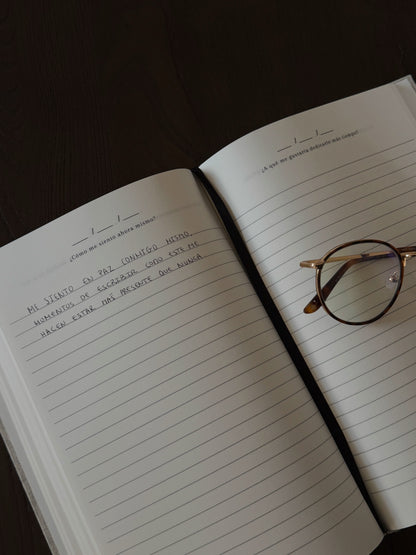 __ / __ / __
¿Cómo me siento ahora mismo?
ME SIENTO EN PAZ CONMIGO MISMO,
MOMENTOS DE ESCRIBIR COMO ESTE ME
HACEN ESTAR MÁS PRESENTE QUE NUNCA
__ / __ / __
¿A qué me gustaría dedicarle más tiempo?